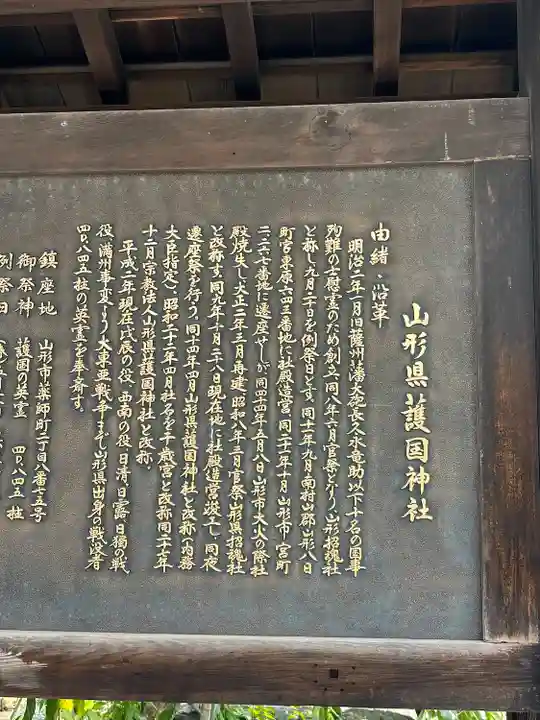 山形県護国神社
由緒・沿革
明治二年一月旧薩州藩大砲長久永竜助以下十名の国事
殉難の士慰霊のため創立、同八年六月官祭となり、山形招魂社
と称し九月二十日を例祭日とす。同十一年九月南村山郡山形八日
町宮東原一四三番地に社殿造営、同二十二年十月山形市二宮町
二二六七番地に遷座せしが、同四十四年五月八日山形市大火の際社
殿焼失し、大正二年三月再建、昭和八年三月官祭山形県招魂社
と改称す。同九年十月二十八日現在地に社殿造宮竣工し、同夜
遷座祭を行う。同十四年四月山形県護国神社と改称(内務
大臣指定)、昭和二十二年四月社名を千歳宮と改称同二十七年
十二月宗教法人山形県護国神社と改称、
平成二年現在戊辰の役、西南の役、日清、日露、日独の戦
役、満州事変より大東亜戦争まで山形県出身の戦没者
四〇、八四五柱の英霊を奉斎す。
鎮座地 山形市薬師町二丁目八番七五号
御祭神 護国の英霊 四〇八四五柱
例祭日